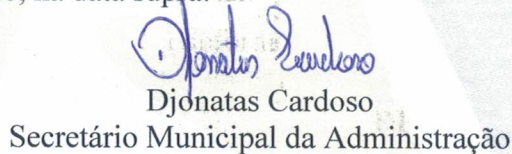 na data supra.
Djonatas Cardoso
Djonatas Cardoso
Secretário Municipal da Administração